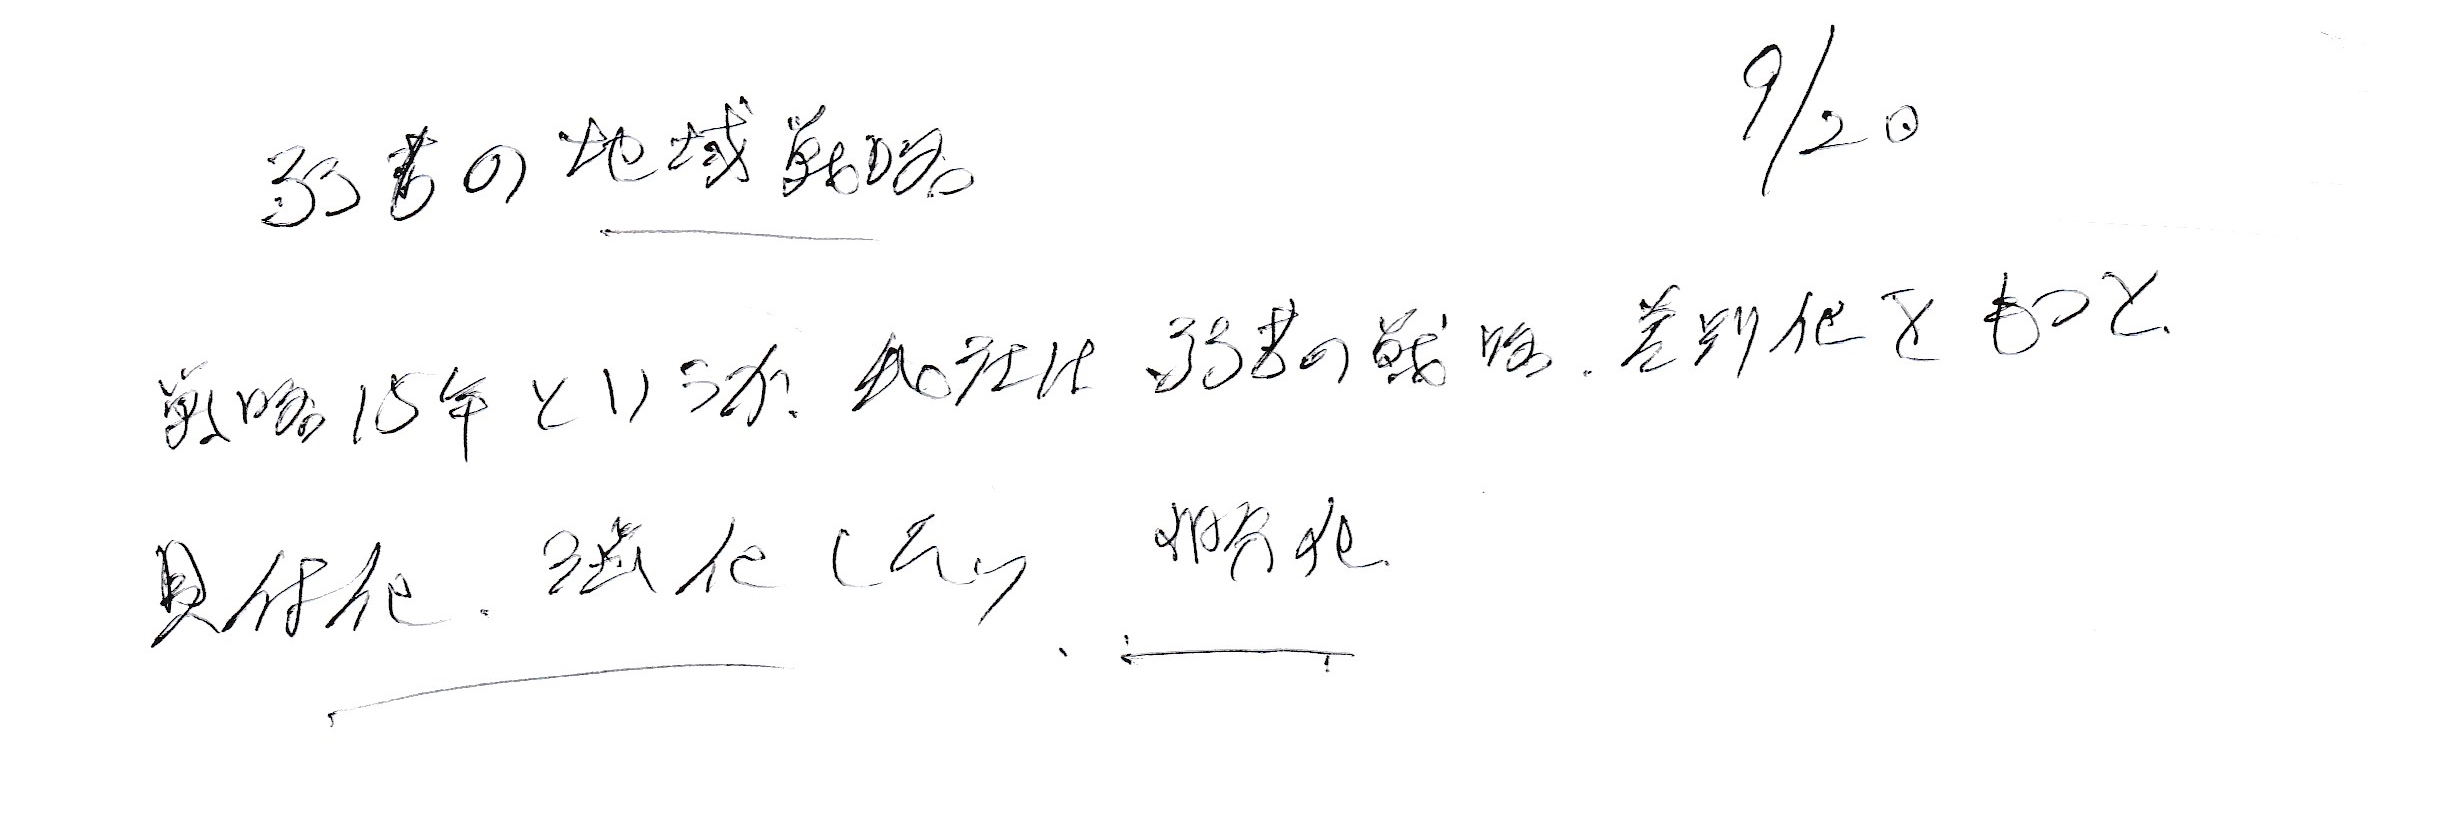 9/20
弱者の地域戦略
戦略15年というが、当社は弱者の戦略、差別化をもっと、
具体化、強化したい、明確化